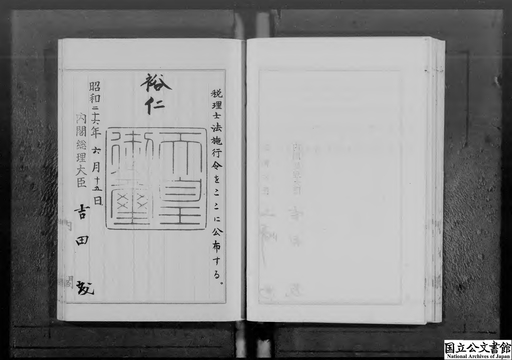 税理士法施行令をここに公布する。
裕仁
天皇御璽
昭和二十六年六月十五日
内閣総理大臣
吉田茂
国立公文書館
National Archives of Japan